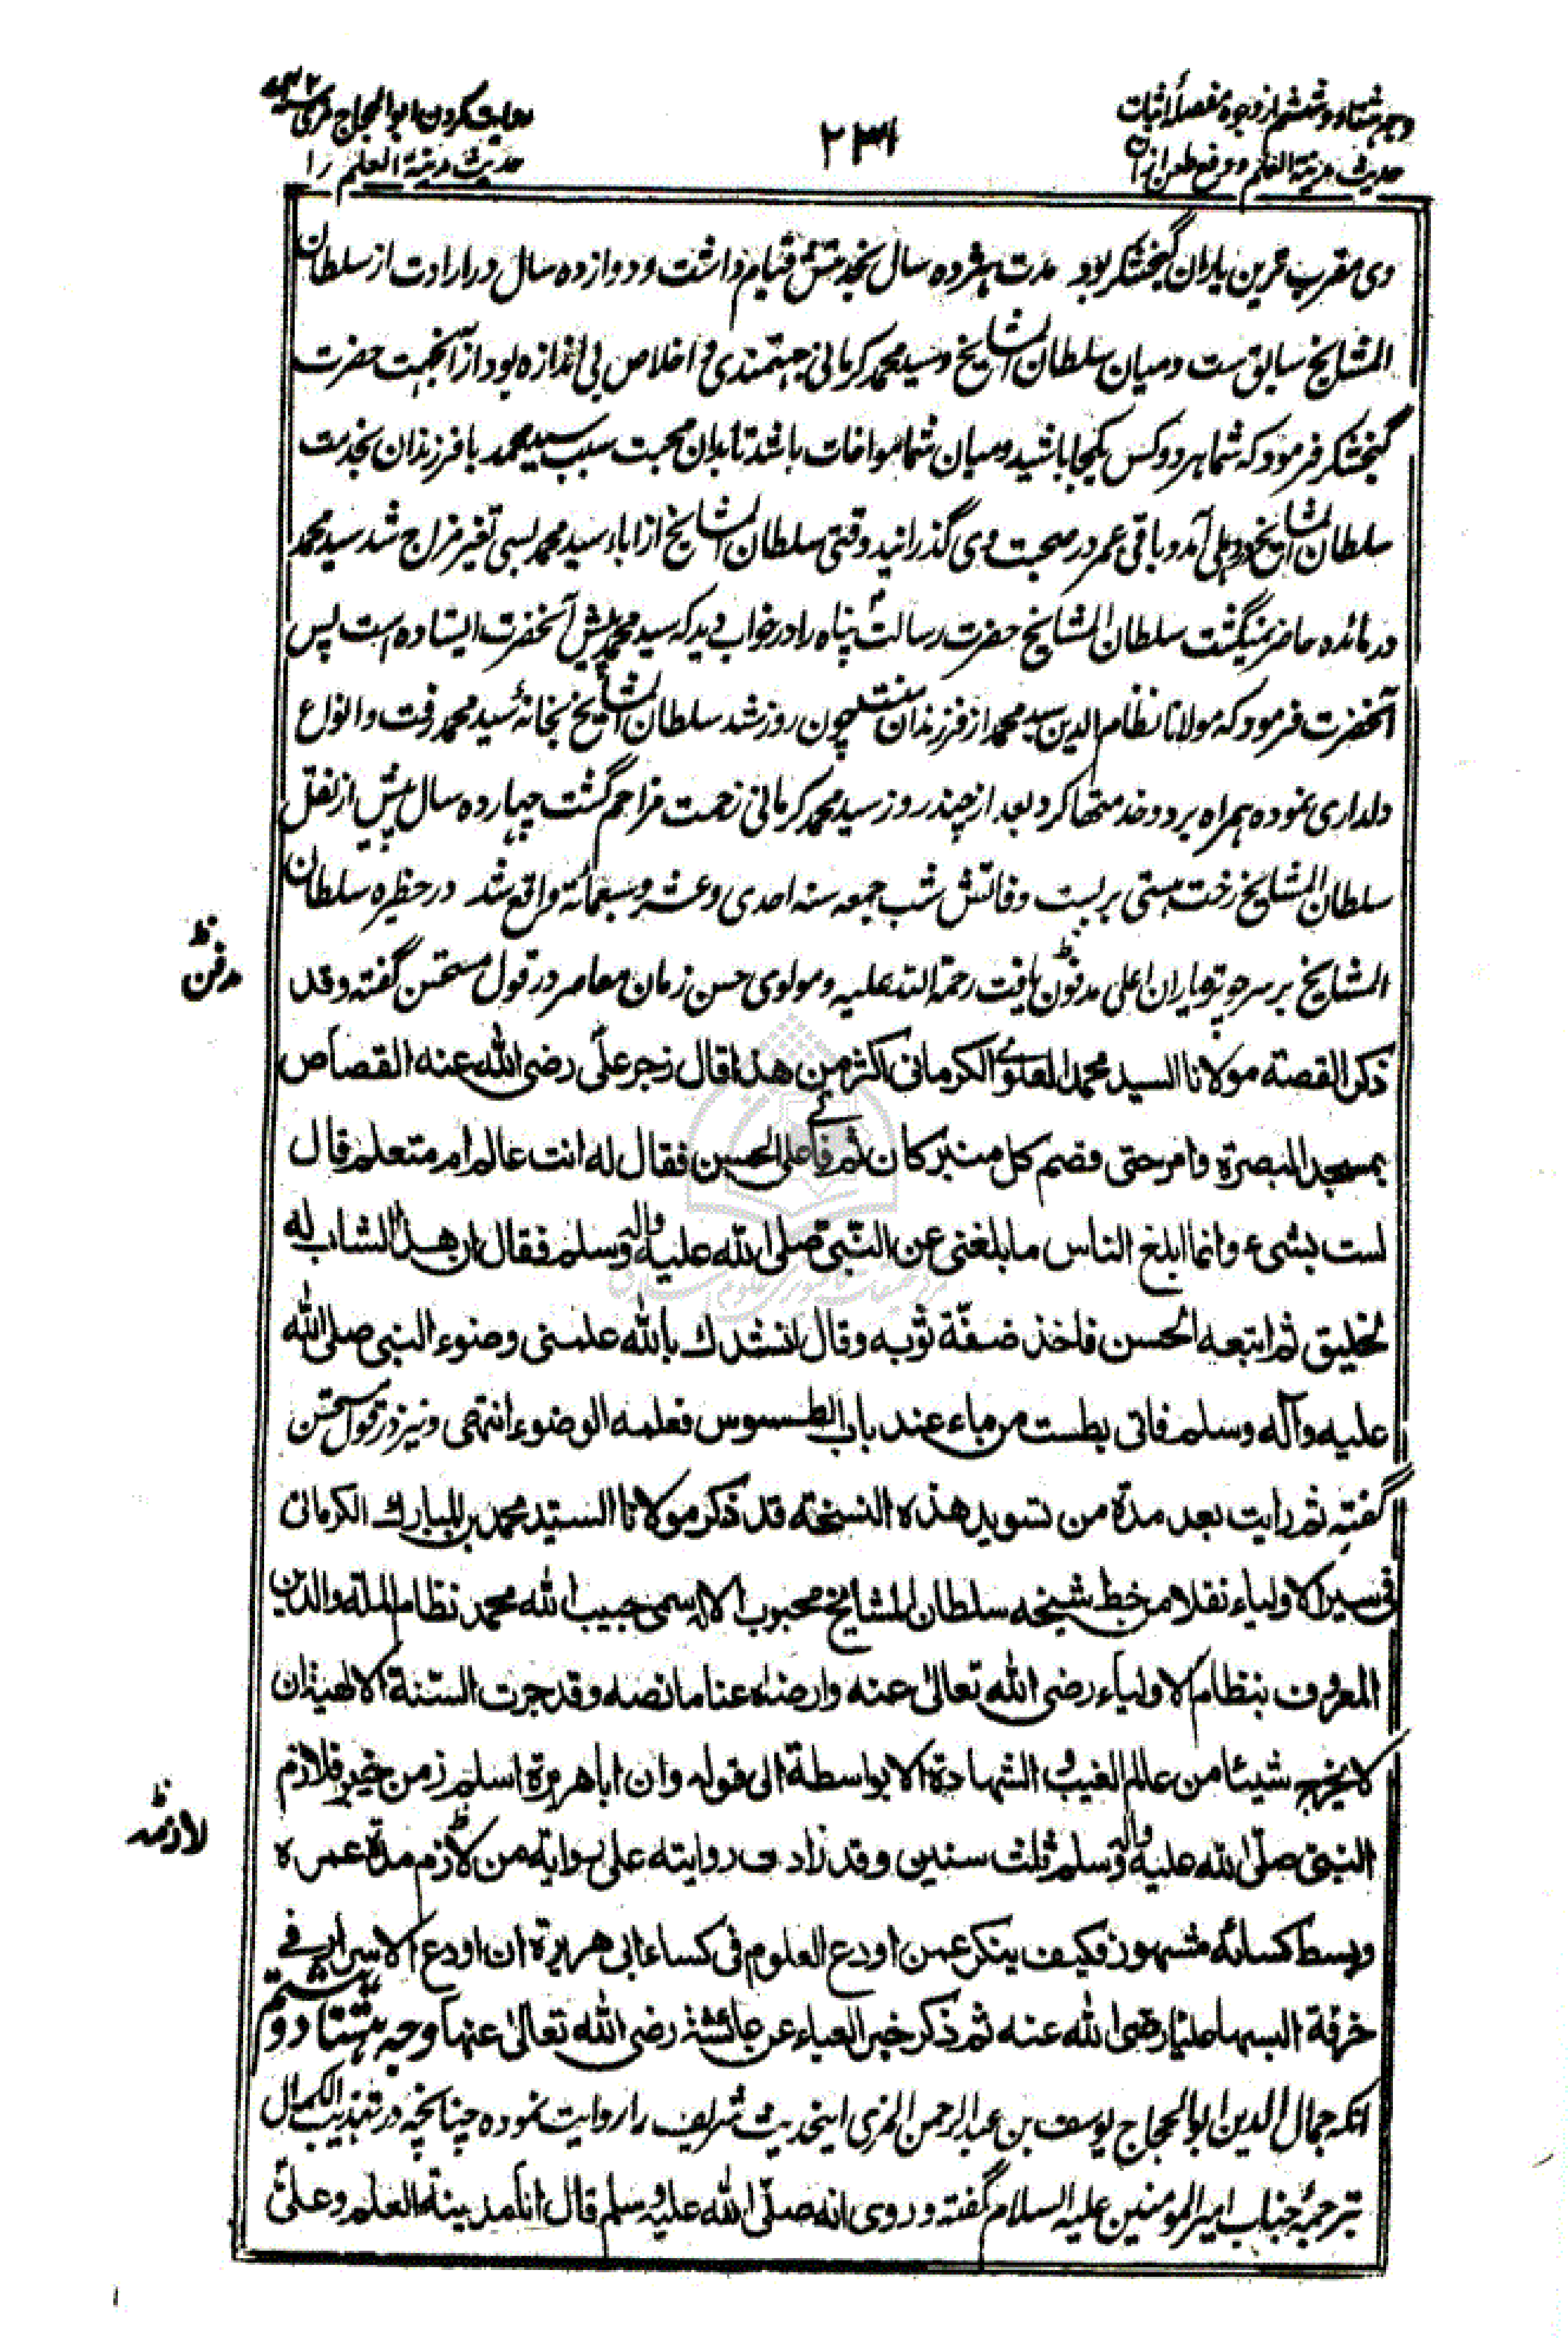 وجه هشتاد و ششم از وجوه مفصلهٔ اثبات
حدیث مدینة العلم و دفع طعن از آن
۲۳۱
روایت کردن ابو الحجاج مزی
حدیث مدینة العلم را
وی مقرب ترین یاران گنجشکر بود مدت هژده سال بخدمتش قیام داشت و دوازده سال در ارادت از سلطان
المشایخ سابق ست و میان سلطان المشایخ و سید محمد کرمانی جهتمندی و اخلاص بی اندازه بود از آنجهت حضرت
گنجشکر فرمود که شما هر دو کس یکجا باشید و میان شما مواخات باشد تا بدان محبت سبب سید محمد با فرزندان بخدمت
سلطان المشایخ در دهلی آمد و باقی عمر در صحبت وی گذرانید وقتی سلطان المشایخ از اباء سید محمد بسبی تغیر مزاج شد سید محمد
در مائده حاضر نمیگشت سلطان المشایخ حضرت رسالت پناه را در خواب دید که سید محمد پیش آنحضرت ایستاده است پس
آنحضرت فرمود که مولانا نظام الدین سید محمد از فرزندان منست چون روز شد سلطان المشایخ بخانهٔ سید محمد رفت و انواع
دلداری نموده همراه برد و خدمتها کرد بعد از چند روز سید محمد کرمانی زحمت مزاحم گشت چهارده سال پیش از نقل
سلطان المشایخ رخت هستی بربست وفاتش شب جمعه سنه احدی و عشر و سبعمائة واقع شد در حظیره سلطان
المشایخ بر سر چبوتره یاران اعلی مدفون یافت رحمة الله علیه و مولوی حسن زمان معاصر در قول مستحسن گفته وقد
مدفن ظ
ذکر القصة مولانا السید محمد العلوی الکرمانی اکثر من هذا قال زجر علی رضی الله عنه القصاص
بمسجد البصرة وامر حتی قصم کل منبر کان ثم فاء علی الحسن فقال له انت عالم ام متعلم قال
لست بشیء وانما ابلغ الناس ما بلغنی عن النبی صلی الله علیه واله وسلم فقال ان هذا الشاب له
لخلیق ثم اتبعه الحسن فاخذ ضفة ثوبه وقال انشدك بالله علمنی وضوء النبی صلی الله
علیه وآله وسلم فاتی بطست من ماء عند باب الطسوس فعلمه الوضوء انتهی و نیز در قول مستحسن
گفته ثم رایت بعد مدة من تسوید هذه النسخة قد ذکر مولانا السید محمد بن المبارك الکرمانی
فی سیر الاولیاء نقلا من خط شیخه سلطان المشایخ محبوب الاله سمی حبیب الله محمد نظام الملة والدین
المعروف بنظام الاولیاء رضی الله تعالی عنه وارضاه عنا ما نصه وقد جرت السنة الالهیة ان
لا یخرج شیئا من عالم الغیب الشهادة الا بواسطة الی قوله وان ابا هریرة اسلم زمن خیبر فلازم
النبی صلی الله علیه واله وسلم ثلث سنین وقد زادت روایته علی روایة من لازم مدة عمره
لازمه ظ
وبسط کسائه مشهور فکیف ینکر عمن اودع العلوم فی کساء ابی هریرة ان اودع الاسرار فی
خرقة البسها علیا رضی الله عنه ثم ذکر خبر العباء عن عائشة رضی الله تعالی عنها وجه هشتاد و ششم
آنکه جمال الدین ابو الحجاج یوسف بن عبد الرحمن المزی اینحدیث شریف را روایت نموده چنانچه در تهذیب الکمال
بترجمهٔ جناب امیر المومنین علیه السلام گفته وروی انه صلی الله علیه وسلم قال انا مدینة العلم وعلی